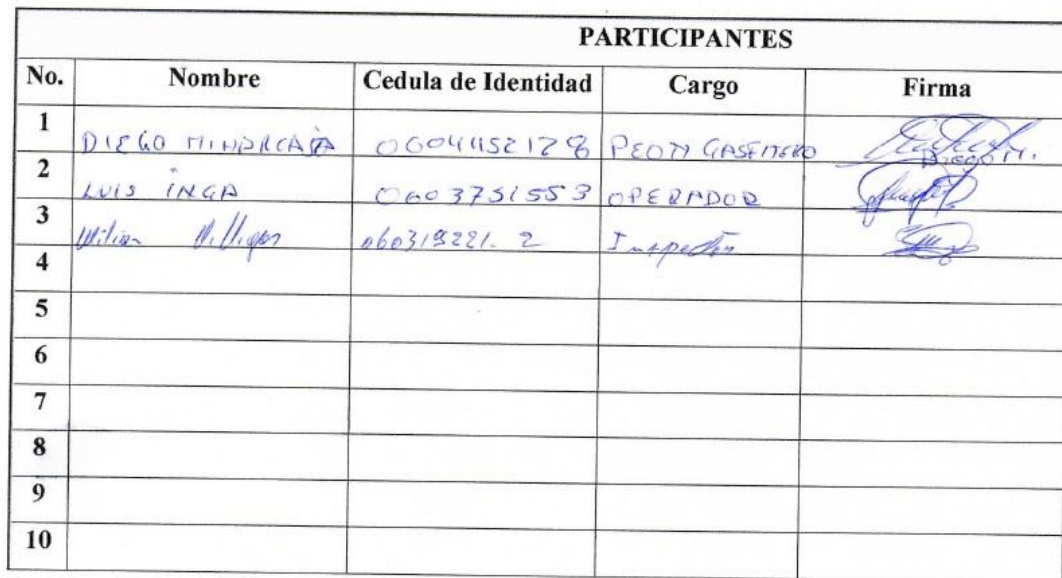 PARTICIPANTES
No. Nombre Cedula de Identidad Cargo Firma
1 DIEGO MINARCAJA 0604452128 PEON GASFITERO DIEGO M.
2 LUIS INGA 0603751553 OPERADOR
3 Wilian 060319221-2 Inspector
4
5
6
7
8
9
10